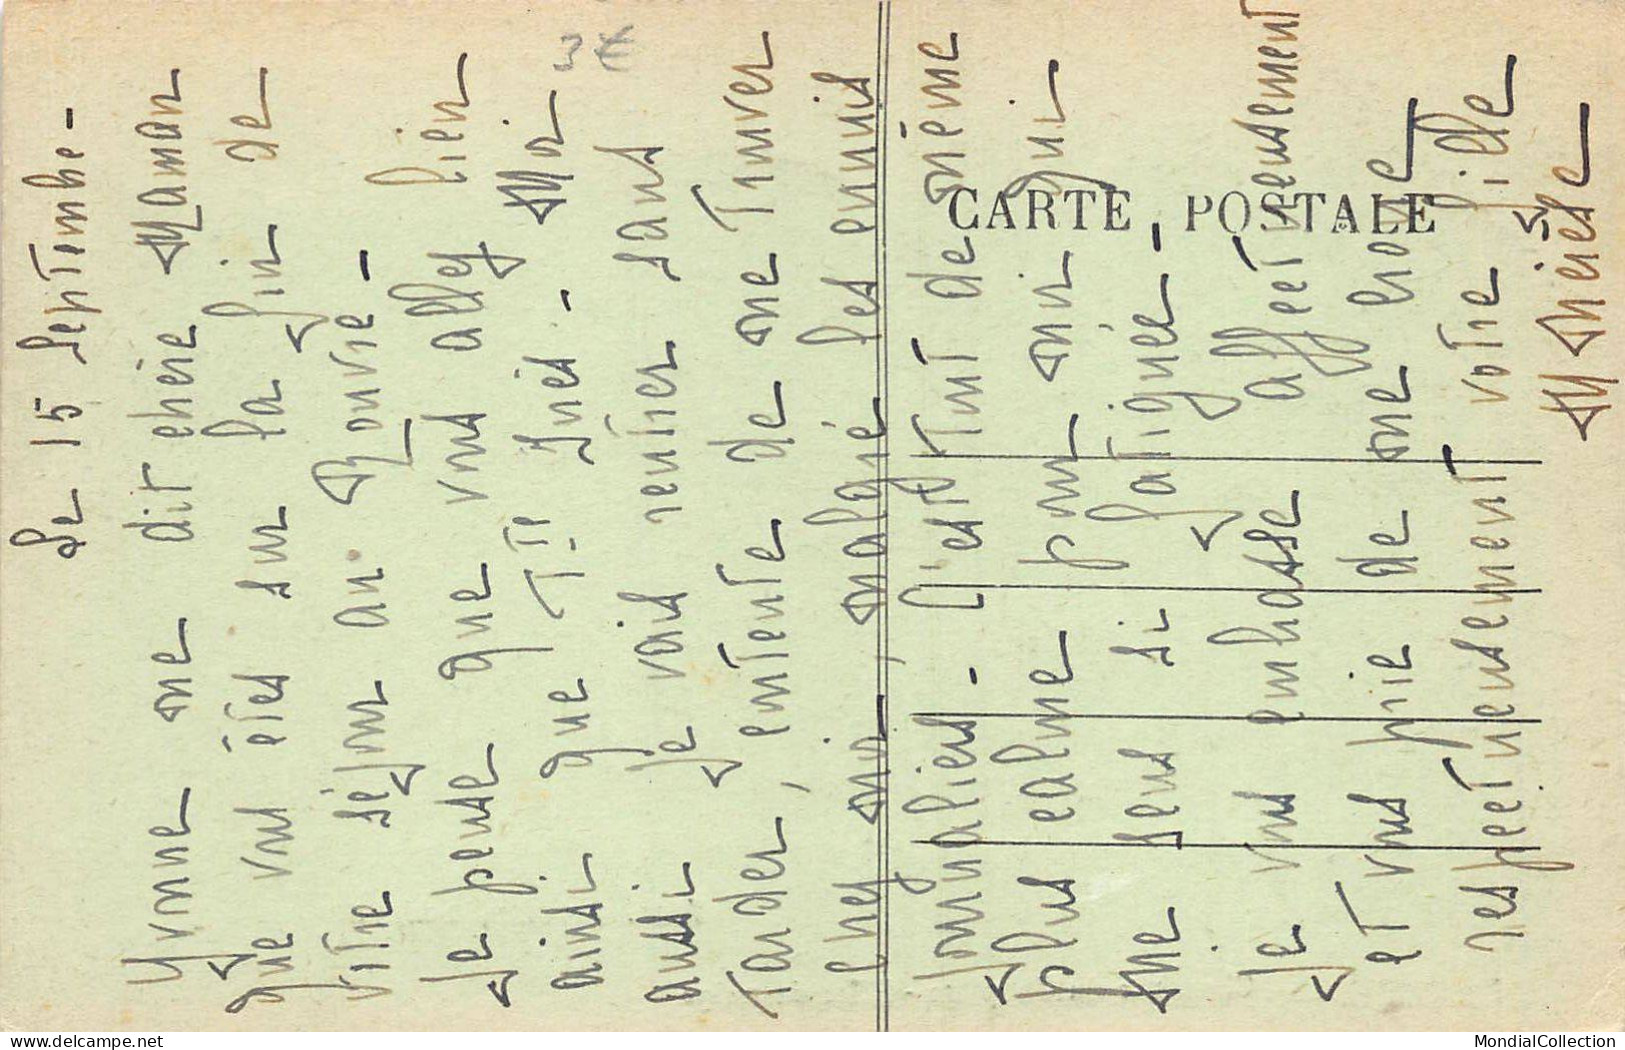 Le 15 Septembre -
Yvonne me dit chère Maman
que vous êtes sur la fin de
votre séjour au Rouvre -
Je pense que vous allez bien
ainsi que Tte Inès - Moi
aussi je vais rentrer sans
tarder, contente de me trouver
chez moi, malgré les ennuis
journaliers - C'est tout de même
plus calme pour moi qui
me sens si fatiguée -
Je vous embrasse affectueusement
et vous prie de me croire
respectueusement votre fille
M
3€
CARTE POSTALE
delcampe.net
MondialCollection